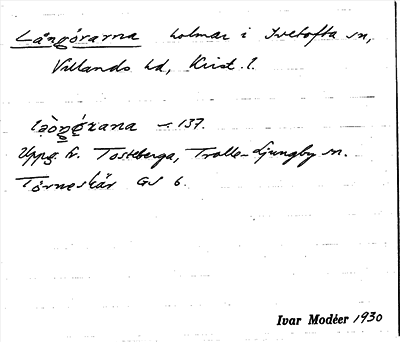 Långörarna holmar i Ivetofta sn,
Villands hd, Krist. l.
– 137.
Uppg. fr. Tosteberga, Trolle-Ljungby sn.
Törneskär GS 6.
Ivar Modéer 1930